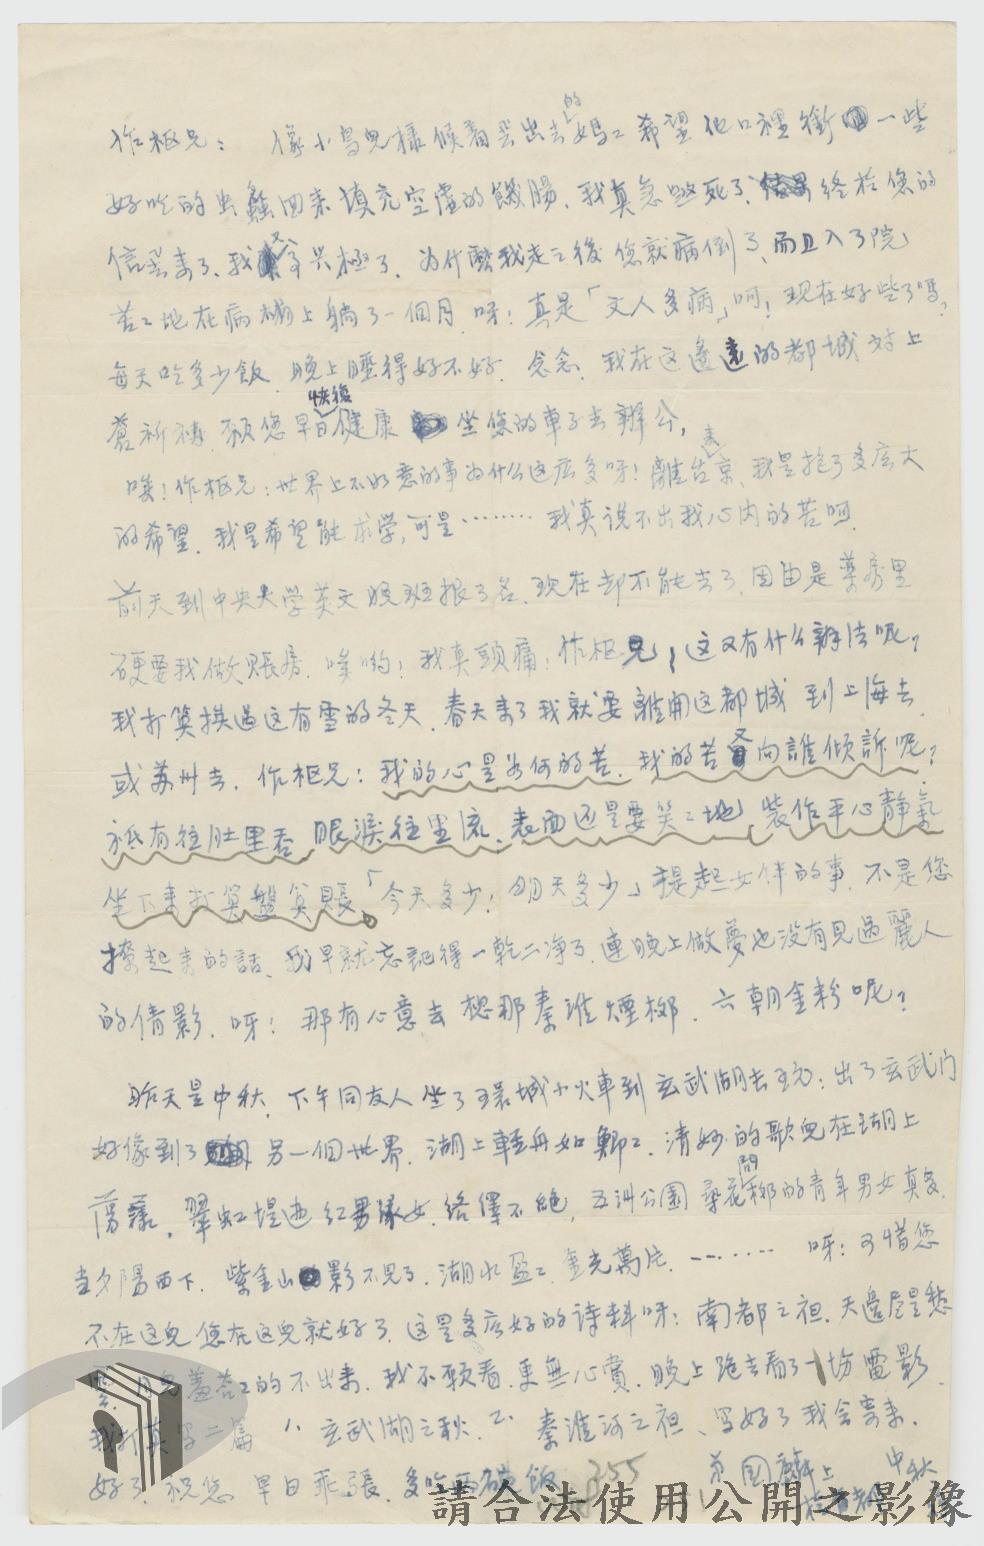 作枢兄： 像小鳥兒樣候着哭出去的媽〻希望他口裡銜一些
好吃的虫蟻回來填充空虛的餓腸，我真急燃死了，終於您的
信哭來了，我又高兴極了，為什麼我走之後您就病倒了，而且入了院
苦〻地在病床上躺了一個月，呀！真是「文人多病」呵！現在好些了嗎，
每天吃多少飯，晚上睡得好不好，念念，我在这邊遠的都城对上
蒼祈禱，願您早日恢復健康 坐您的車子去辦公，
唉！作枢兄：世界上不如意的事为什么这麽多呀！離台來京，我是抱了多広大
的希望，我是希望能求学，可是……… 我真说不出我心內的苦呵，
前天到中央大学英文晚班报了名，現在却不能去了，因由是藥房里
硬要我做賬房，唉喲！我真頭痛，作枢兄，这又有什么辦法呢？
我打算挨過这有雪的冬天，春天来了我就要離開这都城 到上海去
或苏州去，作枢兄：我的心是为何的苦，我的苦又向誰倾訴呢？
祇有往肚里吞，眼淚往里流，表面还是要笑〻地，裝作平心静氣
坐下来打算盤算賬「今天多少！明天多少」提起女伴的事，不是您
撩起来的話，我早就忘記得一乾二净了，連晚上做夢也没有見過麗人
的倩影，呀！那有心意去想那秦淮煙柳，六朝金粉呢？
昨天是中秋，下午同友人坐了環城小火車到玄武湖去玩：出了玄武门
好像到了另一個世界，湖上輕舟如鯽〻，清妙的歌兒在湖上
蕩漾，翠虹堤邊红男绿女，络繹不絕，五洲公園桑花間柳的青年男女真多，
当夕陽西下，紫金山影不見了，湖水盈〻，金光萬片，……… 呀！可惜您
不在这兒您在这兒就好了，这是多広好的诗料呀：南都之夜，天邊尽是愁
雲，月兒羞答〻的不出來，我不願看，更無心賞，晚上跑去看了一場電影，
我打算写二篇 1、玄武湖之秋，2、秦淮河之夜，写好了我会寄来，
好了，祝您 早日乖張，多吃两碗飯 355 弟 國麟上 中秋
請合法使用公開之影像